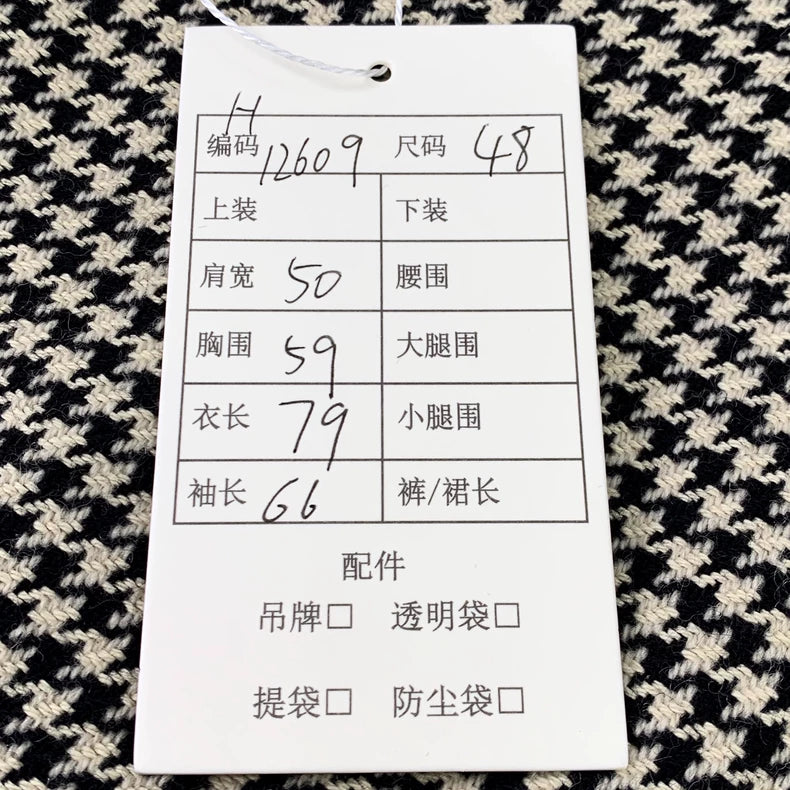 H
编码 12609 尺码 48
上装 下装
肩宽 50 腰围
胸围 59 大腿围
衣长 79 小腿围
袖长 66 裤/裙长
配件
吊牌□ 透明袋□
提袋□ 防尘袋□